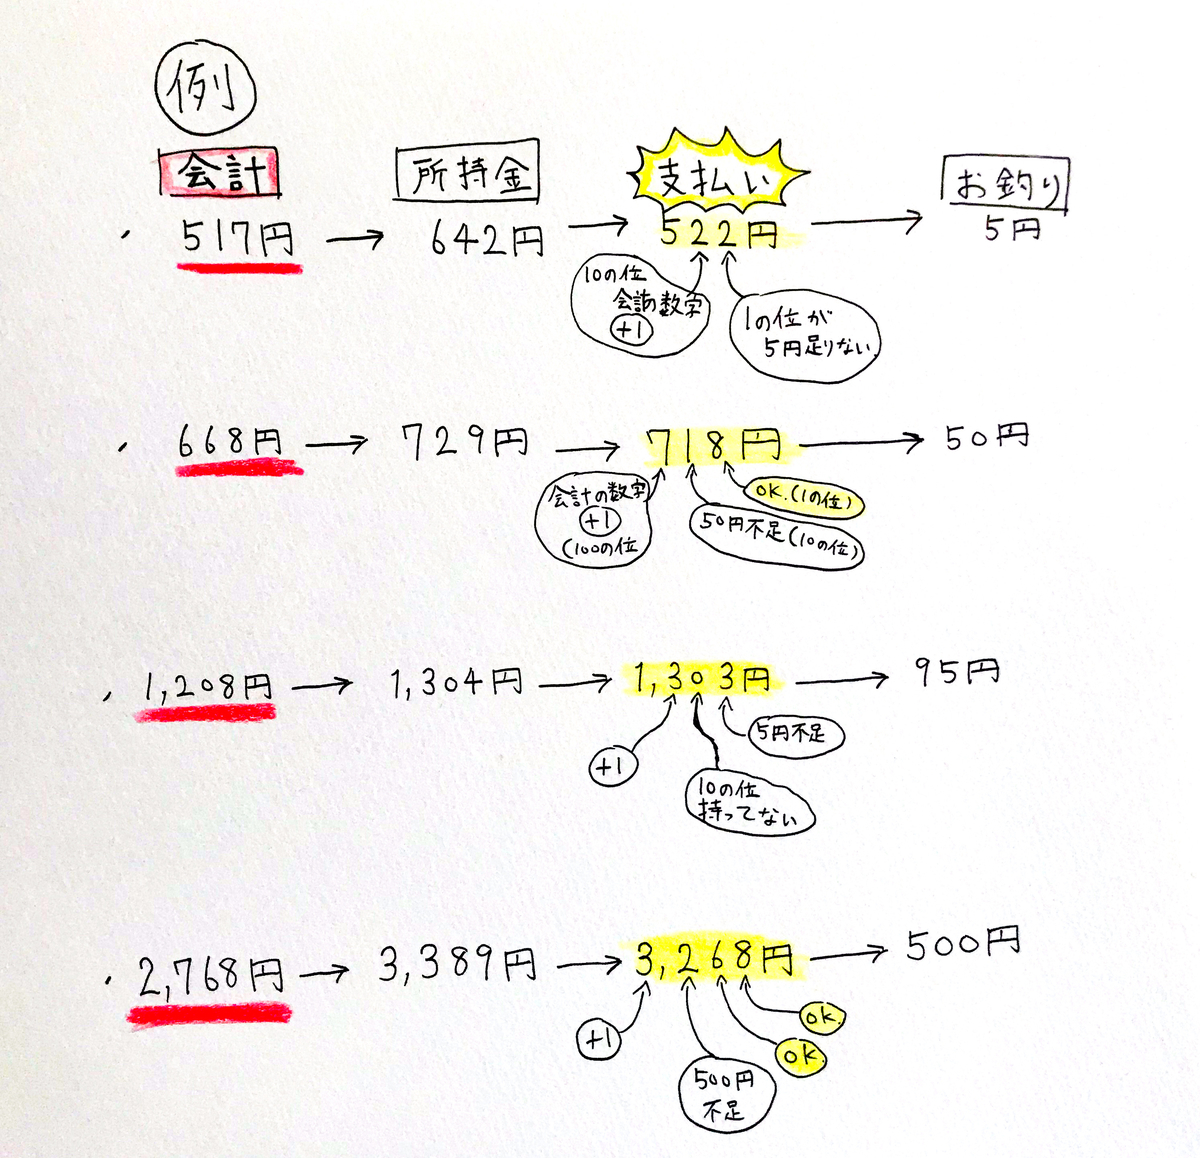 例
会計 所持金 支払い お釣り
517円 → 642円 → 522円 → 5円
10の位
会計の数字
+1
1の位が
5円足りない
668円 → 729円 → 718円 → 50円
会計の数字
+1
(100の位
50円不足(10の位)
OK.(1の位)
1,208円 → 1,304円 → 1,303円 → 95円
+1
10の位
持ってない
5円不足
2,768円 → 3,389円 → 3,268円 → 500円
+1
500円
不足
OK.
OK.